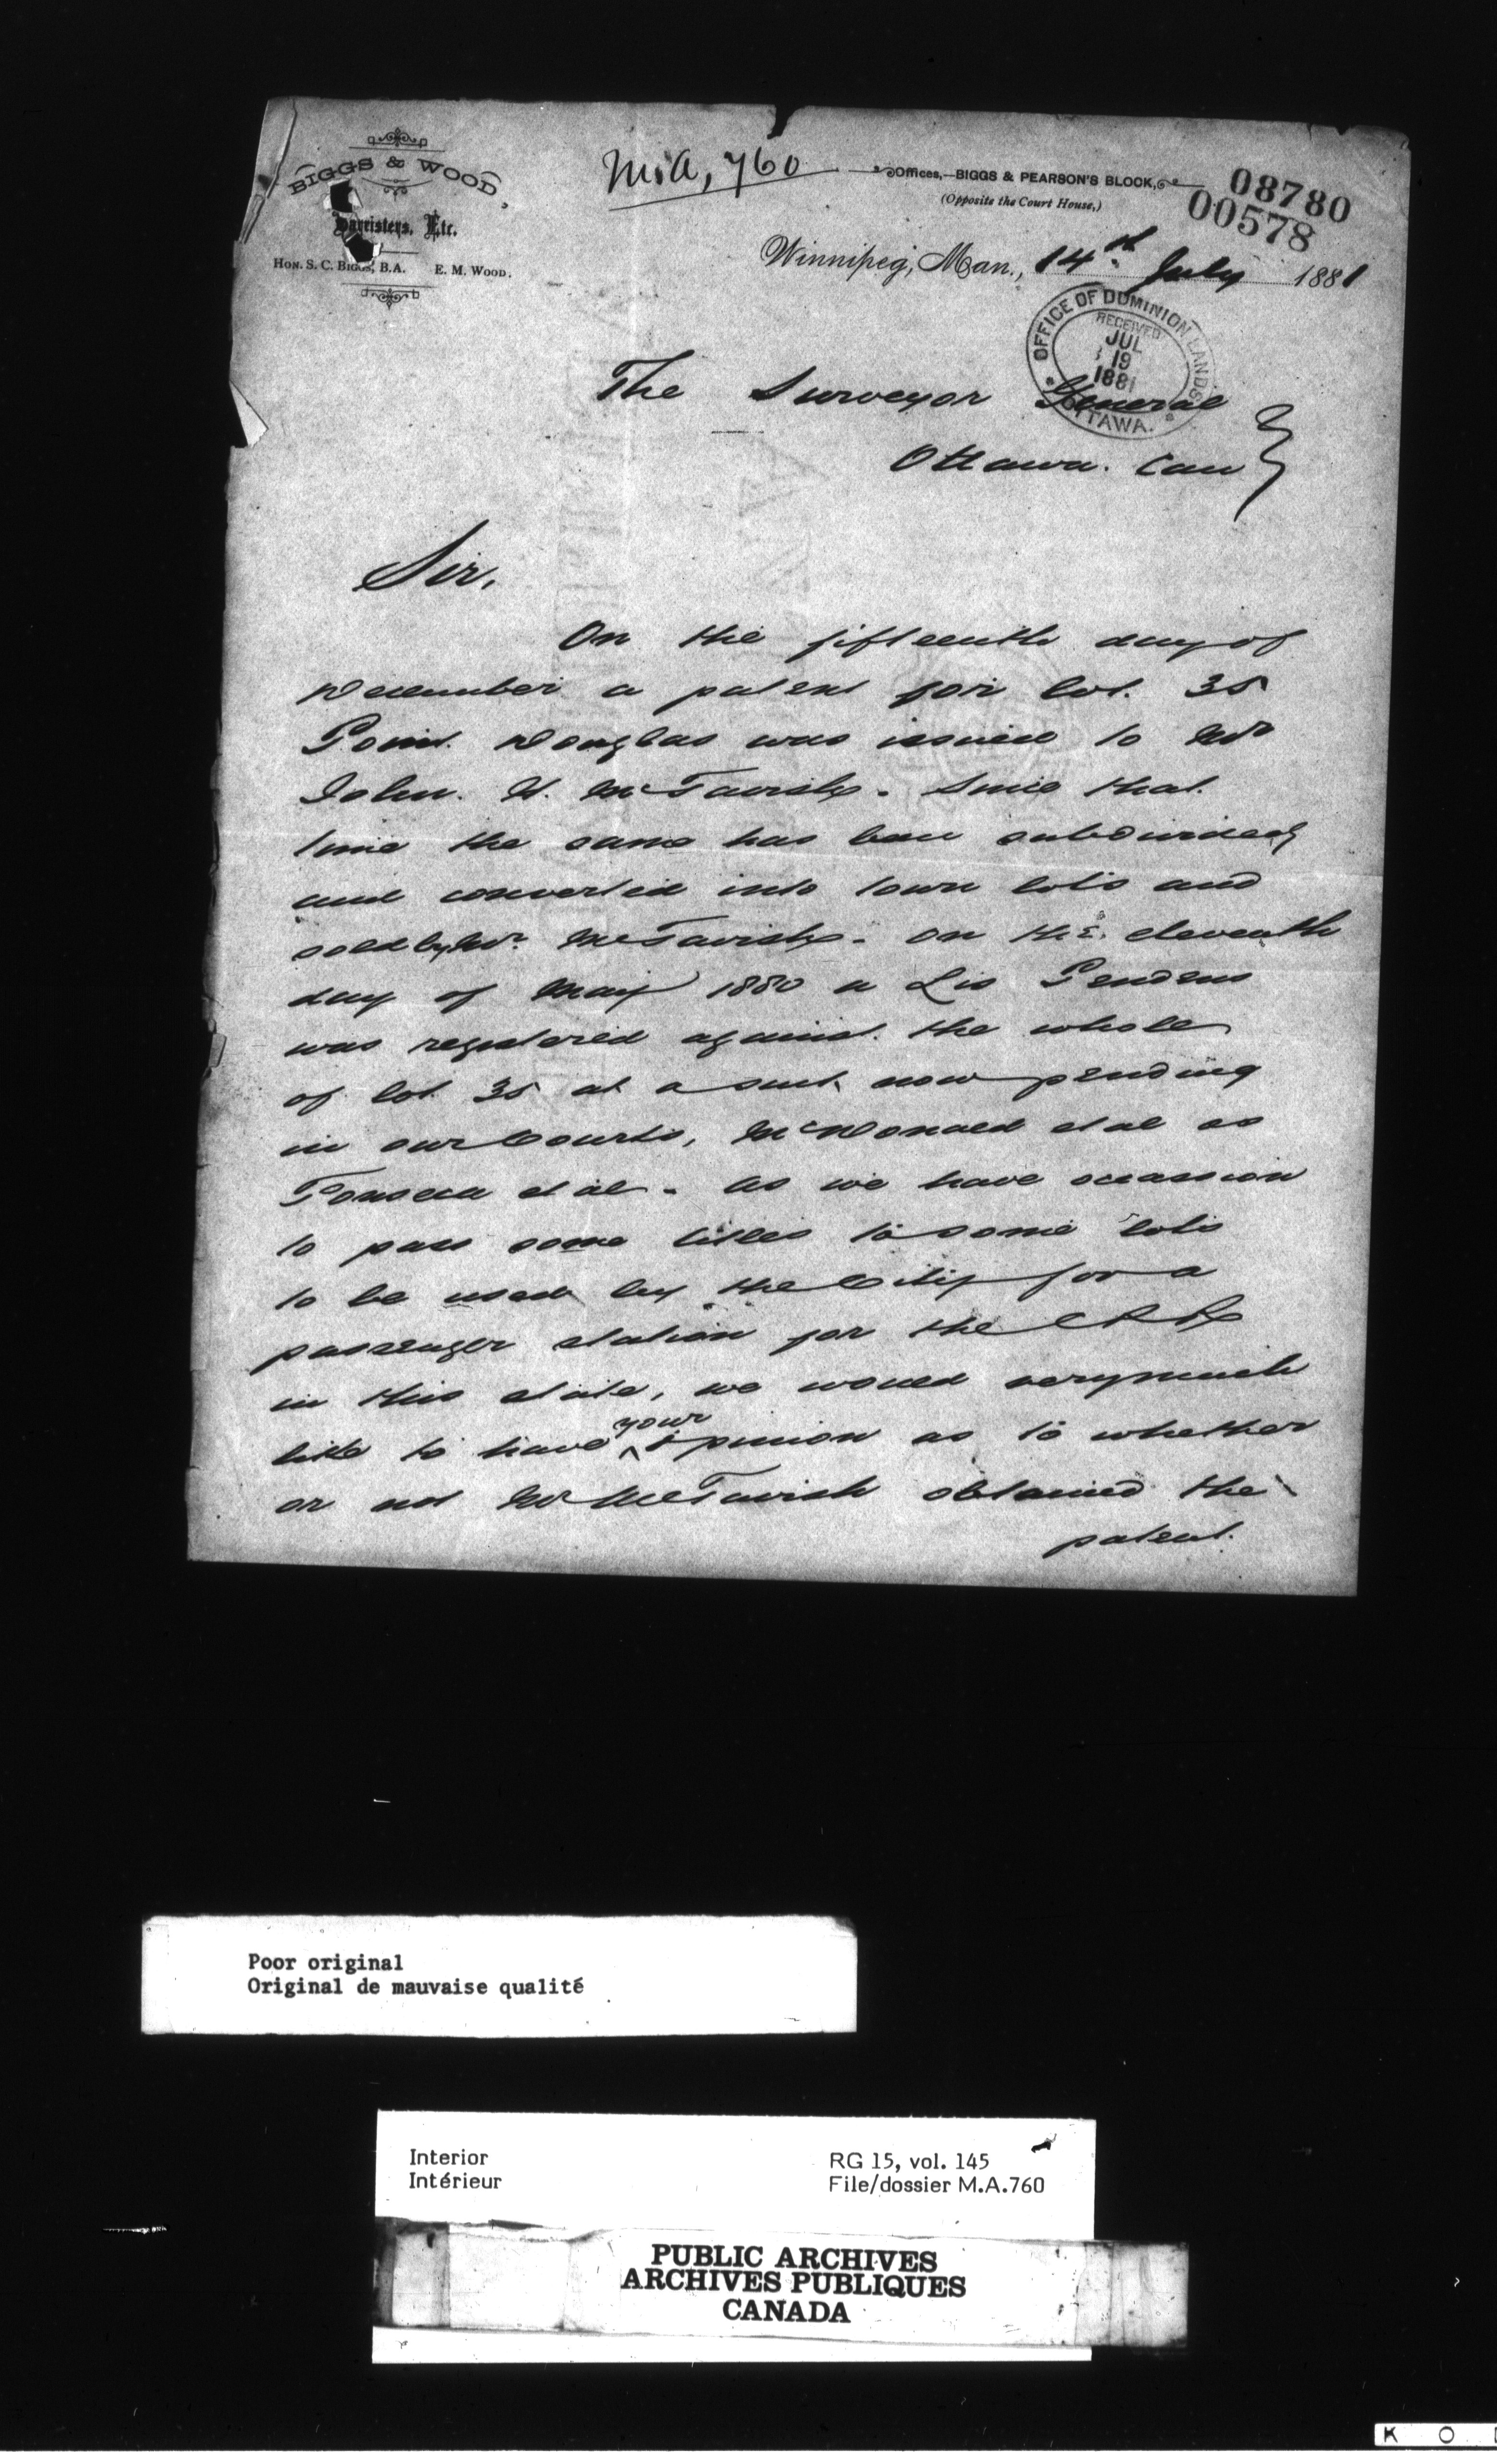 BIGGS & WOOD,
Barristers, Etc.
HON. S. C. BIGGS, B.A. E. M. WOOD.
M.A, 760
Offices,—BIGGS & PEARSON'S BLOCK,
(Opposite the Court House,)
08780
00578
Winnipeg, Man., 14th July 1881
OFFICE OF DOMINION LANDS
RECEIVED
JUL
19
1881
OTTAWA.
The Surveyor General
Ottawa. Can
Sir,
On the fifteenth day of
December a patent for lot. 35
Point Douglas was issued to Mr
John. H. McTavish. Since that
time the same has been subdivided
and converted into town lots and
sold by Mr. McTavish. On the eleventh
day of May 1880 a Lis Pendens
was registered against the whole
of lot 35 at a suit now pending
in our Courts, McDonald et al vs
Fonseca et al. As we have occassion
to pass some titles to some lots
to be used by the City for a
passenger station for the CPRy
in this state, we would very much
like to have your opinion as to whether
or not Mr McTavish obtained the
patent.
Poor original
Original de mauvaise qualité
Interior
Intérieur
RG 15, vol. 145
File/dossier M.A.760
PUBLIC ARCHIVES
ARCHIVES PUBLIQUES
CANADA
K O